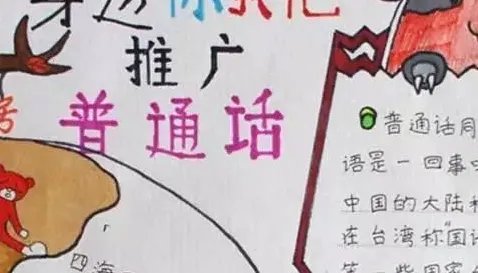 你我他
推广
普通话
普通话同
语是一回事
中国的大陆和
在台湾称国语
等一些国家
四海